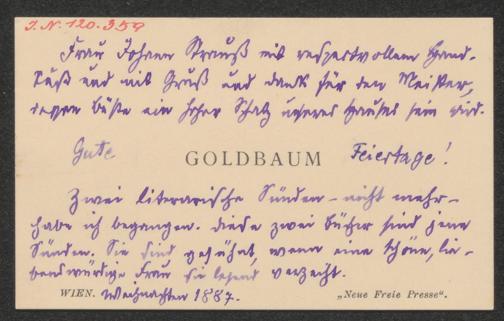 I.N. 120.359
Frau Johann Strauß mit respectvollem Hand-
kuß und mit Gruß und Dank für den Meister,
dessen Büste ein hoher Schatz unseres Hauses sein wird.
Gute GOLDBAUM Feiertage!
Zwei literarische Sünden – nicht mehr –
habe ich begangen. Diese zwei Bücher sind jene
Sünden. Sie sind gesühnt, wenn eine schöne, lie-
benswürdige Frau sie lesend verzeiht.
WIEN. Weihnachten 1887. „Neue Freie Presse“.